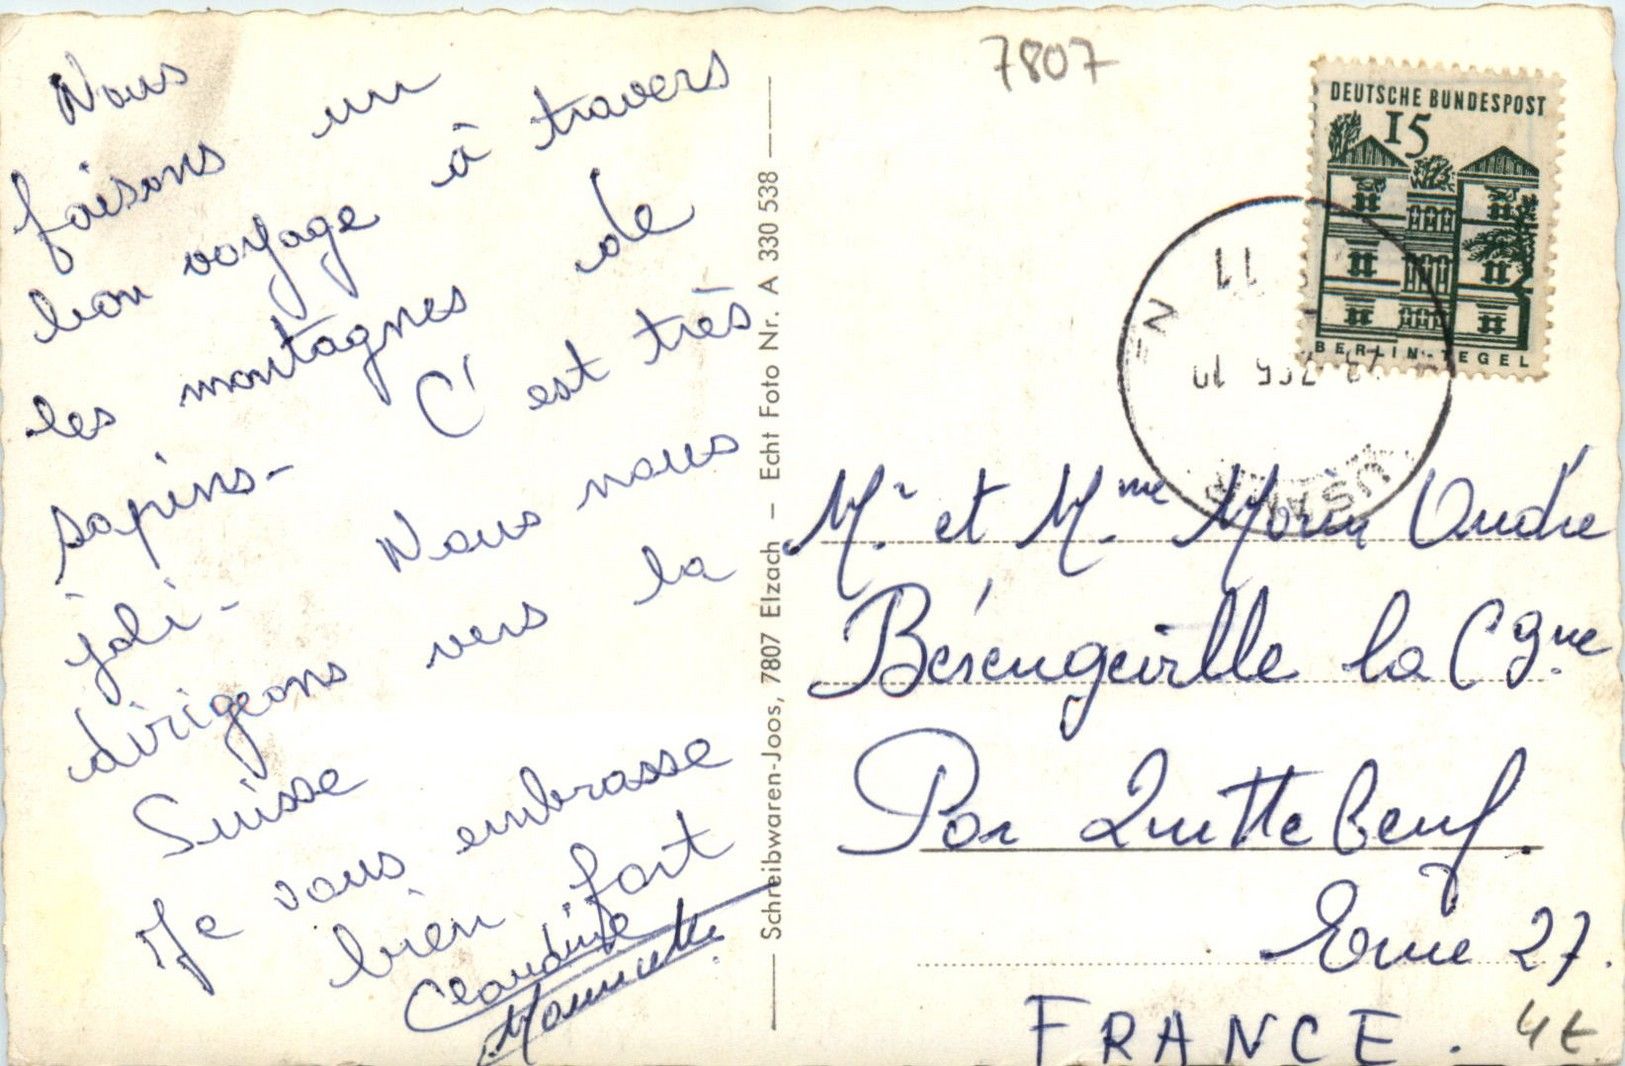 Nous
faisons un
bon voyage à travers
les montagnes de
sapins - C'est très
joli - Nous nous
dirigeons vers la
Suisse
Je vous embrasse
bien fort
Claudine
Schreibwaren-Joos, 7807 Elzach - Echt Foto Nr. A 330 538
7807
DEUTSCHE BUNDESPOST
15
BERLIN-TEGEL
11
Mr. et Mme Morin André
Bérengeville la Cgne
Par Quittebeuf.
Eure 27.
FRANCE.
4€